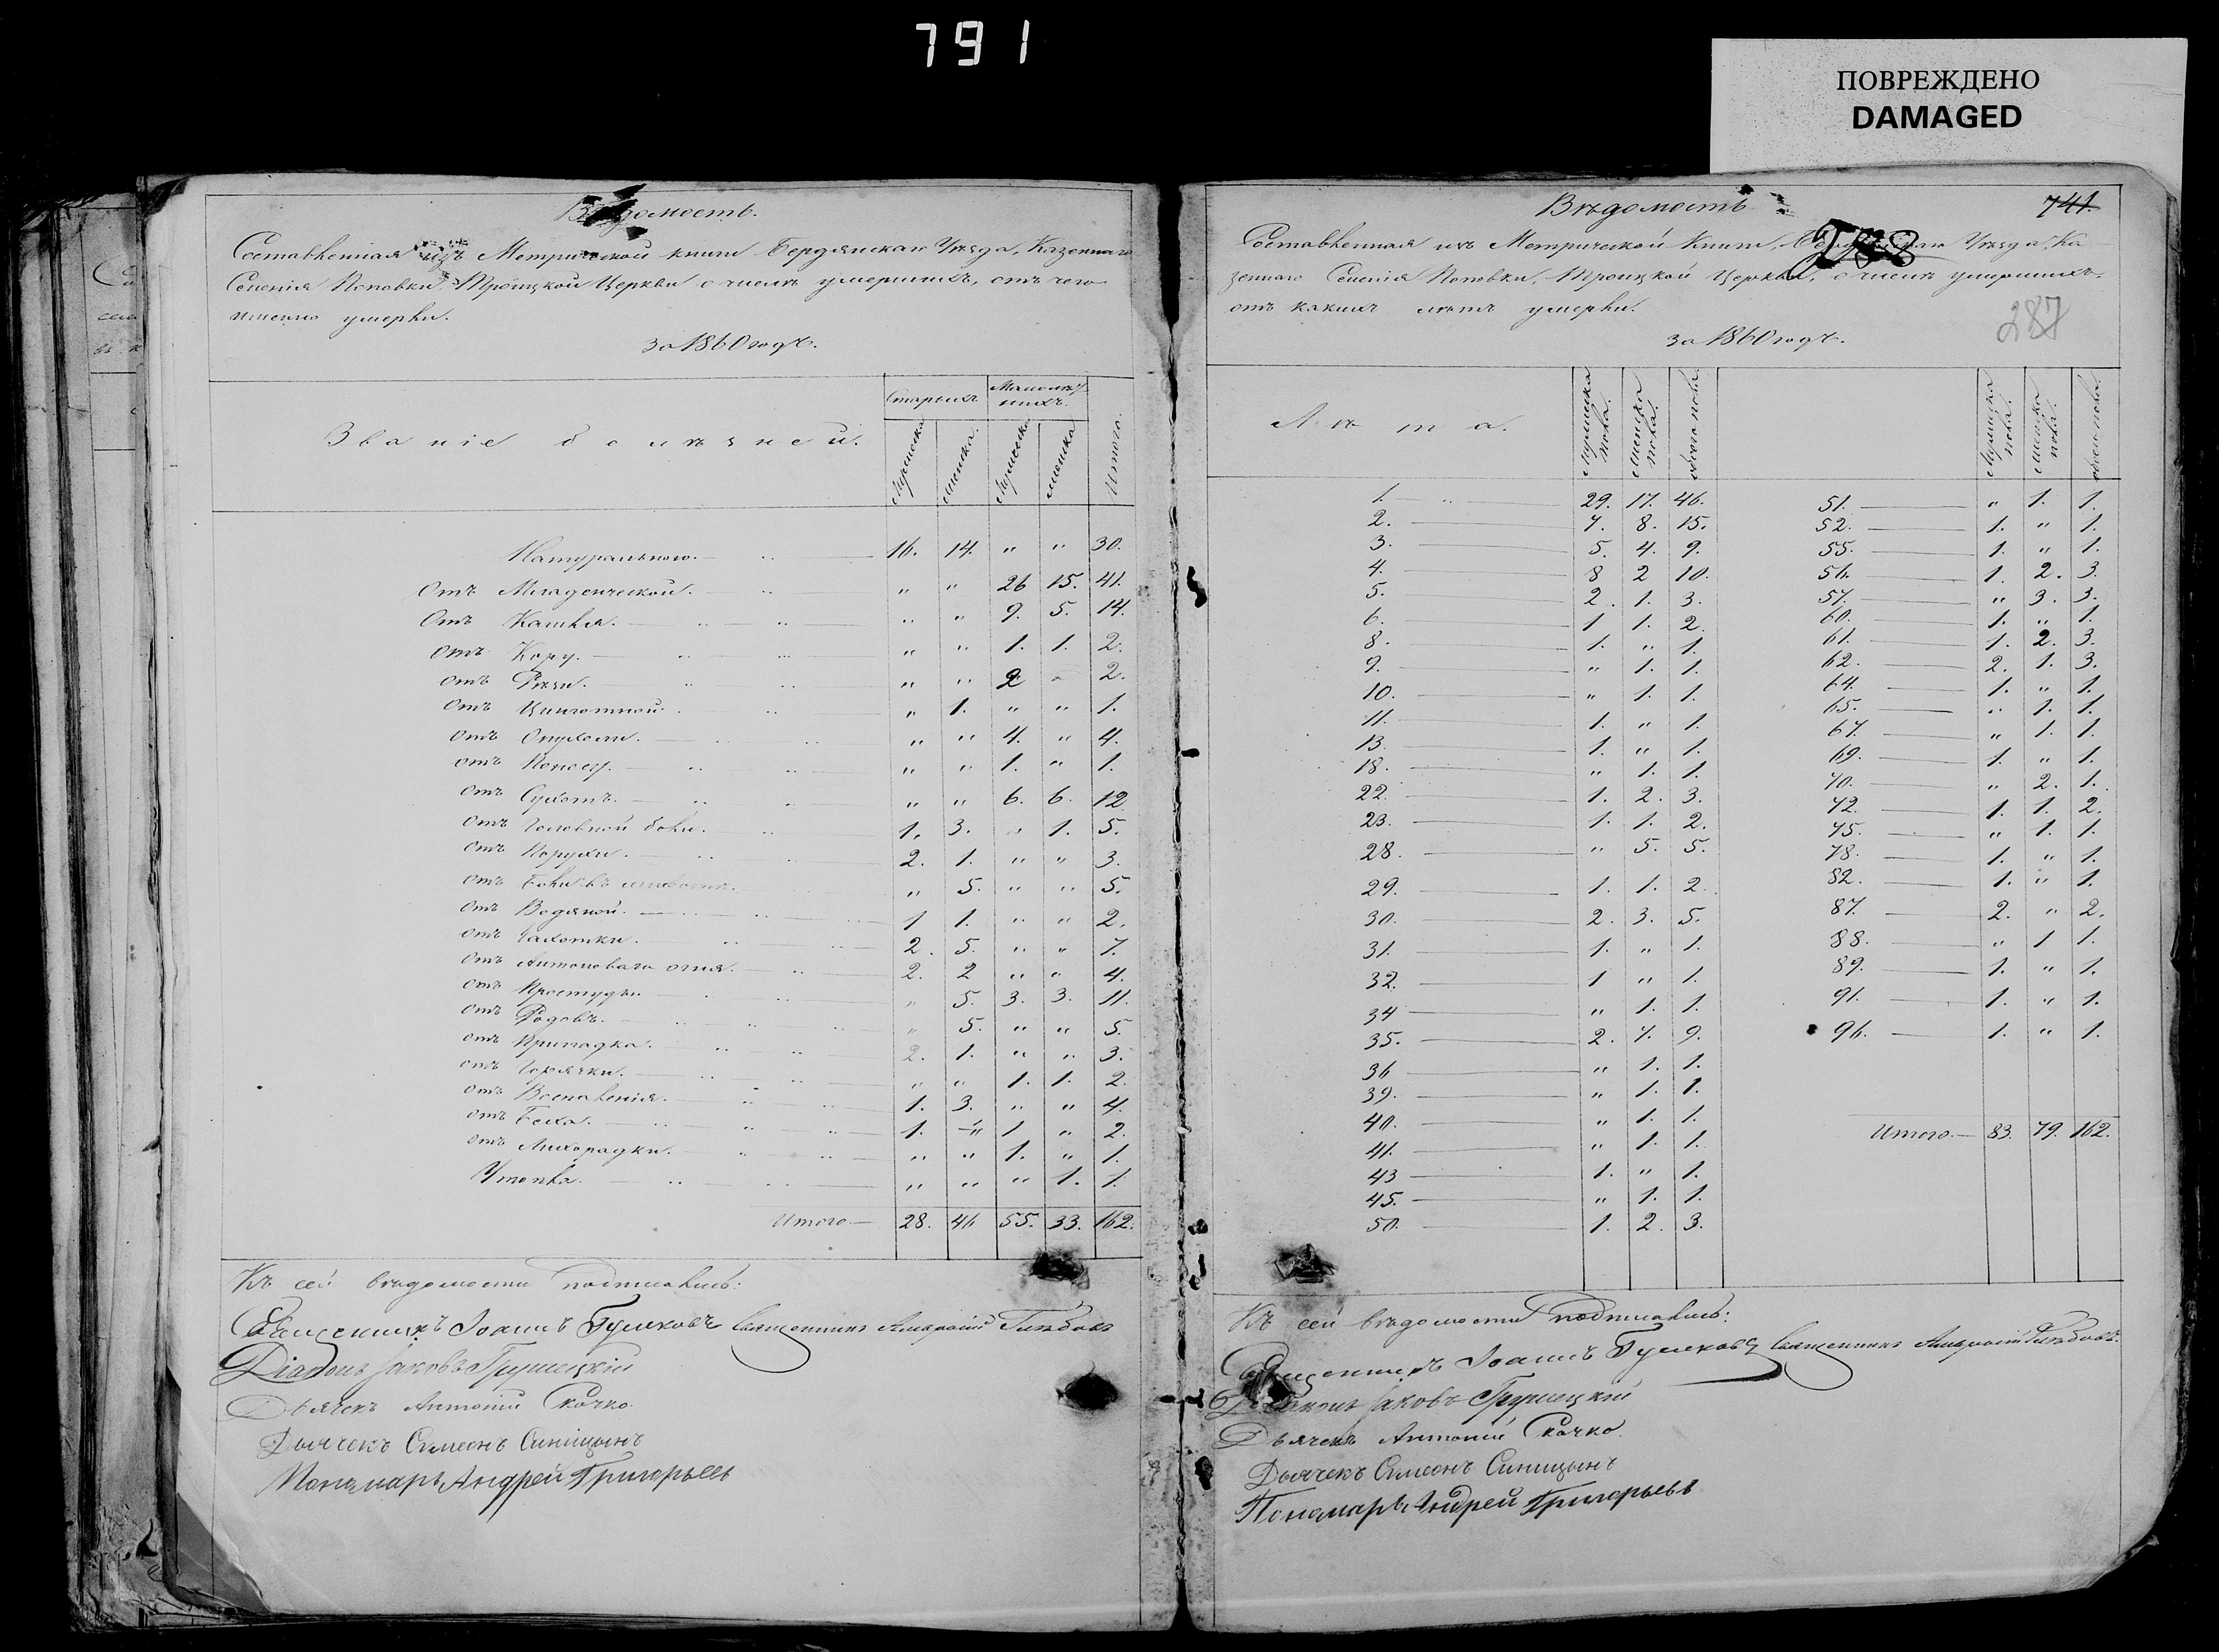 791
ПОВРЕЖДЕНО
DAMAGED
Вѣдомость.
Составленная изъ Метрической книги Бердянскаго Уѣзда, Казеннаго
Селенія Поповки, Троицкой Церкви о числѣ умершихъ, отъ чего
именно умерли.
за 1860 годъ.
Званіе болѣзней. Старыхъ Малолѣтнихъ. Итого.
Мужеска женска. Мужеска женска
Натуральною. 16. 14. " " 30.
Отъ Младенческой. " " 26 15. 41.
Отъ Кашля. " " 9. 5. 14.
отъ Кору. " " 1. 1. 2.
отъ Рѣзи. " " 2 " 2.
отъ Цынготной. " 1. " " 1.
отъ Опухоли. " " 4. " 4.
отъ Поносу. " " 1. " 1.
отъ Сухотъ. " " 6. 6. 12
отъ Головной боли. 1. 3. " 1. 5.
отъ Порухи. 2. 1. " " 3.
отъ Боли въ животѣ. " 5. " " 5.
отъ Водяной. 1 1. " " 2.
отъ Чахотки. 2. 5. " " 7.
отъ Антонова огня. 2. 2 " " 4.
отъ Простуды. " 5. 3. 3. 11.
отъ Родовъ. " 5. " " 5.
отъ Припадка. 2. 1. " " 3.
отъ Горячки. " " 1. 1. 2.
отъ Воспаленія. 1. 3. " " 4.
отъ 1. " 1 " 2.
отъ Лихорадки. " " 1. " 1.
Утопла. " " " 1. 1.
Итого 28. 46 55. 33. 162.
Къ сей вѣдомости подписались:
Священникъ Іоаннъ Священникъ
Діаконъ Іаковъ Грушецкій
Дьячекъ Антоній Скачко.
Дьячекъ Симеонъ Синицынъ
Пономарь Андрей Григорьевъ
Вѣдомость
741.
588
Составленная изъ Метрической книги, Бердянскаго Уѣзда, Ка
зеннаго Селенія Поповки, Троицкой Церкви, о числѣ умершихъ,
отъ какихъ лѣтъ умерли.
287
за 1860 годъ.
Лѣта. Мужеска пола. Женска пола. обоего пола. Мужеска пола. Женска пола. обоего пола.
1. 29. 17. 46. 51. " 1. 1.
2. 7. 8. 15. 52. 1. " 1.
3. 5. 4. 9. 55. 1. " 1.
4. 8 2 10. 56. 1. 2. 3.
5. 2. 1. 3. 57. " 3. 3.
6. 1 1. 2. 60. 1. " 1.
8. 1. " 1. 61. 1. 2. 3.
9. " 1. 1. 62. 2. 1. 3.
10. " 1. 1. 64. 1. " 1.
11. 1. " 1. 65. " 1. 1.
13. 1. " 1. 67. " 1. 1.
18. " 1. 1. 69. 1. " 1.
22. 1. 2. 3. 70. " 2. 1.
23. 1. 1. 2. 72. 1. 1. 2.
28. " 5. 5. 75. " 1. 1.
29. 1. 1. 2. 78. 1. " 1.
30. 2. 3. 5. 82. 1. " 1.
31. 1. " 1. 87. 2. " 2.
32. 1 " 1. 88. " 1 1.
34 " 1. 1. 89. 1. " 1.
35. 2. 7. 9. 91. 1. " 1.
36 " 1. 1. 96. 1. " 1.
39. " 1. 1.
40. " 1. 1.
41. " 1. 1.
43 1. " 1.
45. " 1. 1.
50. 1. 2. 3.
Итого 83. 79. 162.
Къ сей вѣдомости подписались:
Священникъ Іоаннъ Священникъ
Діаконъ Іаковъ Грушецкій
Дьячекъ Антоній Скачко.
Дьячекъ Симеонъ Синицынъ
Пономарь Андрей Григорьевъ